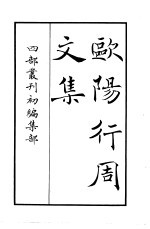 歐陽行周
文集
四部叢刊初編集部